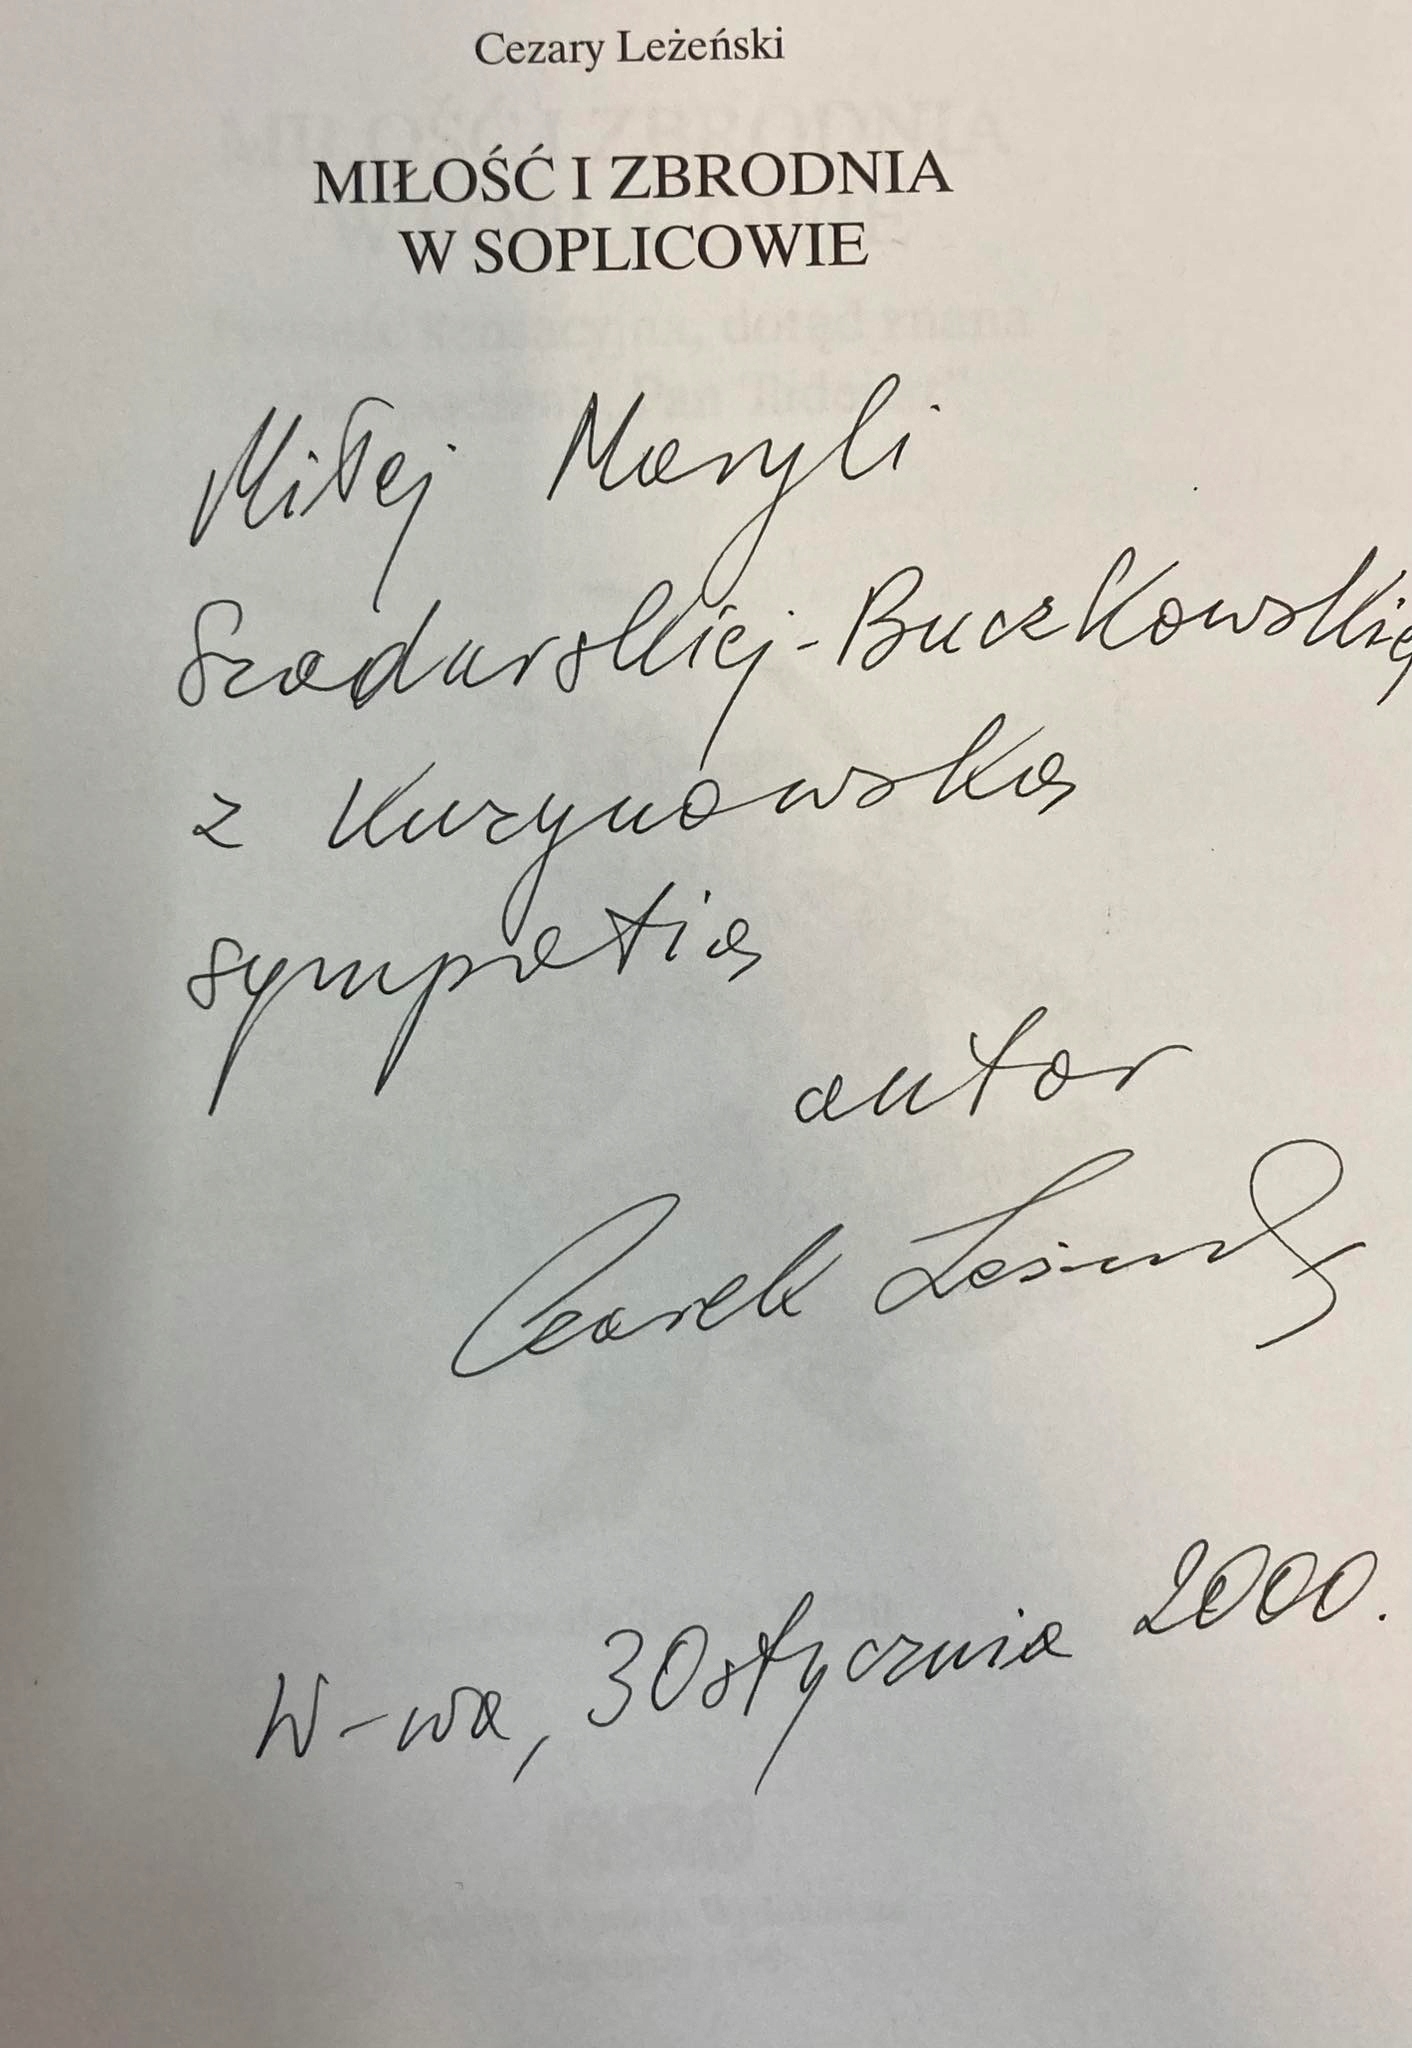 Cezary Leżeński
MIŁOŚĆ I ZBRODNIA
W SOPLICOWIE
Miłej Maryli
Szadurskiej-Buczkowskiej
z kuzynowską
sympatią
autor
Czarek Leżeński
W-wa, 30 stycznia 2000.